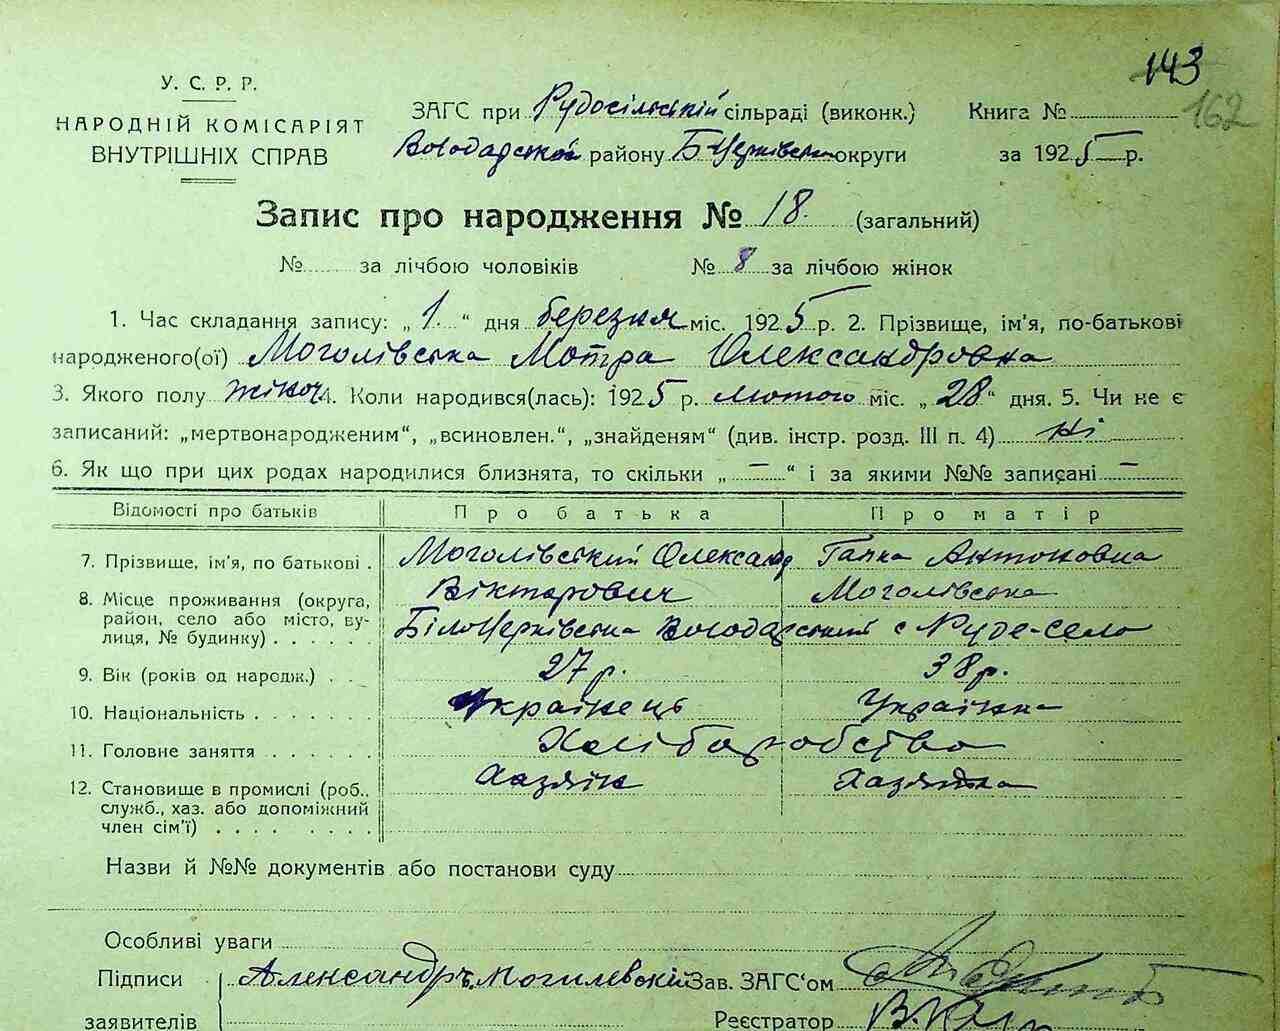 143
162
У. С. Р. Р.
НАРОДНІЙ КОМІСАРІЯТ
ВНУТРІШНІХ СПРАВ
ЗАГС при Рудосільській сільраді (виконк.) Книга №
Володарской району Б-Церківськ округи за 1925 р.
Запис про народження № 18. (загальний)
№ за лічбою чоловіків № 8 за лічбою жінок
1. Час складання запису: „ 1. " дня березня міс. 1925 р. 2. Прізвище, ім'я, по-батькові
народженого(ої) Моголівська Мотра Олександровна
3. Якого полу жіноч 4. Коли народився(лась): 1925 р. лютого міс. „ 28 " дня. 5. Чи не є
записаний: „мертвонародженим", „всиновлен.", „знайденям" (див. інстр. розд. III п. 4) ні
6. Як що при цих родах народилися близнята, то скільки „ — " і за якими №№ записані —
Відомості про батьків Про батька Про матір
7. Прізвище, ім'я, по батькові . Моголівський Олександ Гапка Антоновна
Вікторович Моголівська
8. Місце проживання (округа,
район, село або місто, ву-
лиця, № будинку) . . . . . БілоЦерківська Володарський с Руде-село
9. Вік (років од народж.) . . 27 р. 38 р.
10. Національність . . . . . . . Українець Українка
11. Головне заняття . . . . . . Хліборобство
12. Становище в промислі (роб., Хазяїн Хазяйка
служб., хаз. або допоміжний
член сім'ї) . . . . . . . .
Назви й №№ документів або постанови суду
Особливі уваги
Підписи Александръ Могилевскій Зав. ЗАГС'ом
заявителів Реєстратор В.